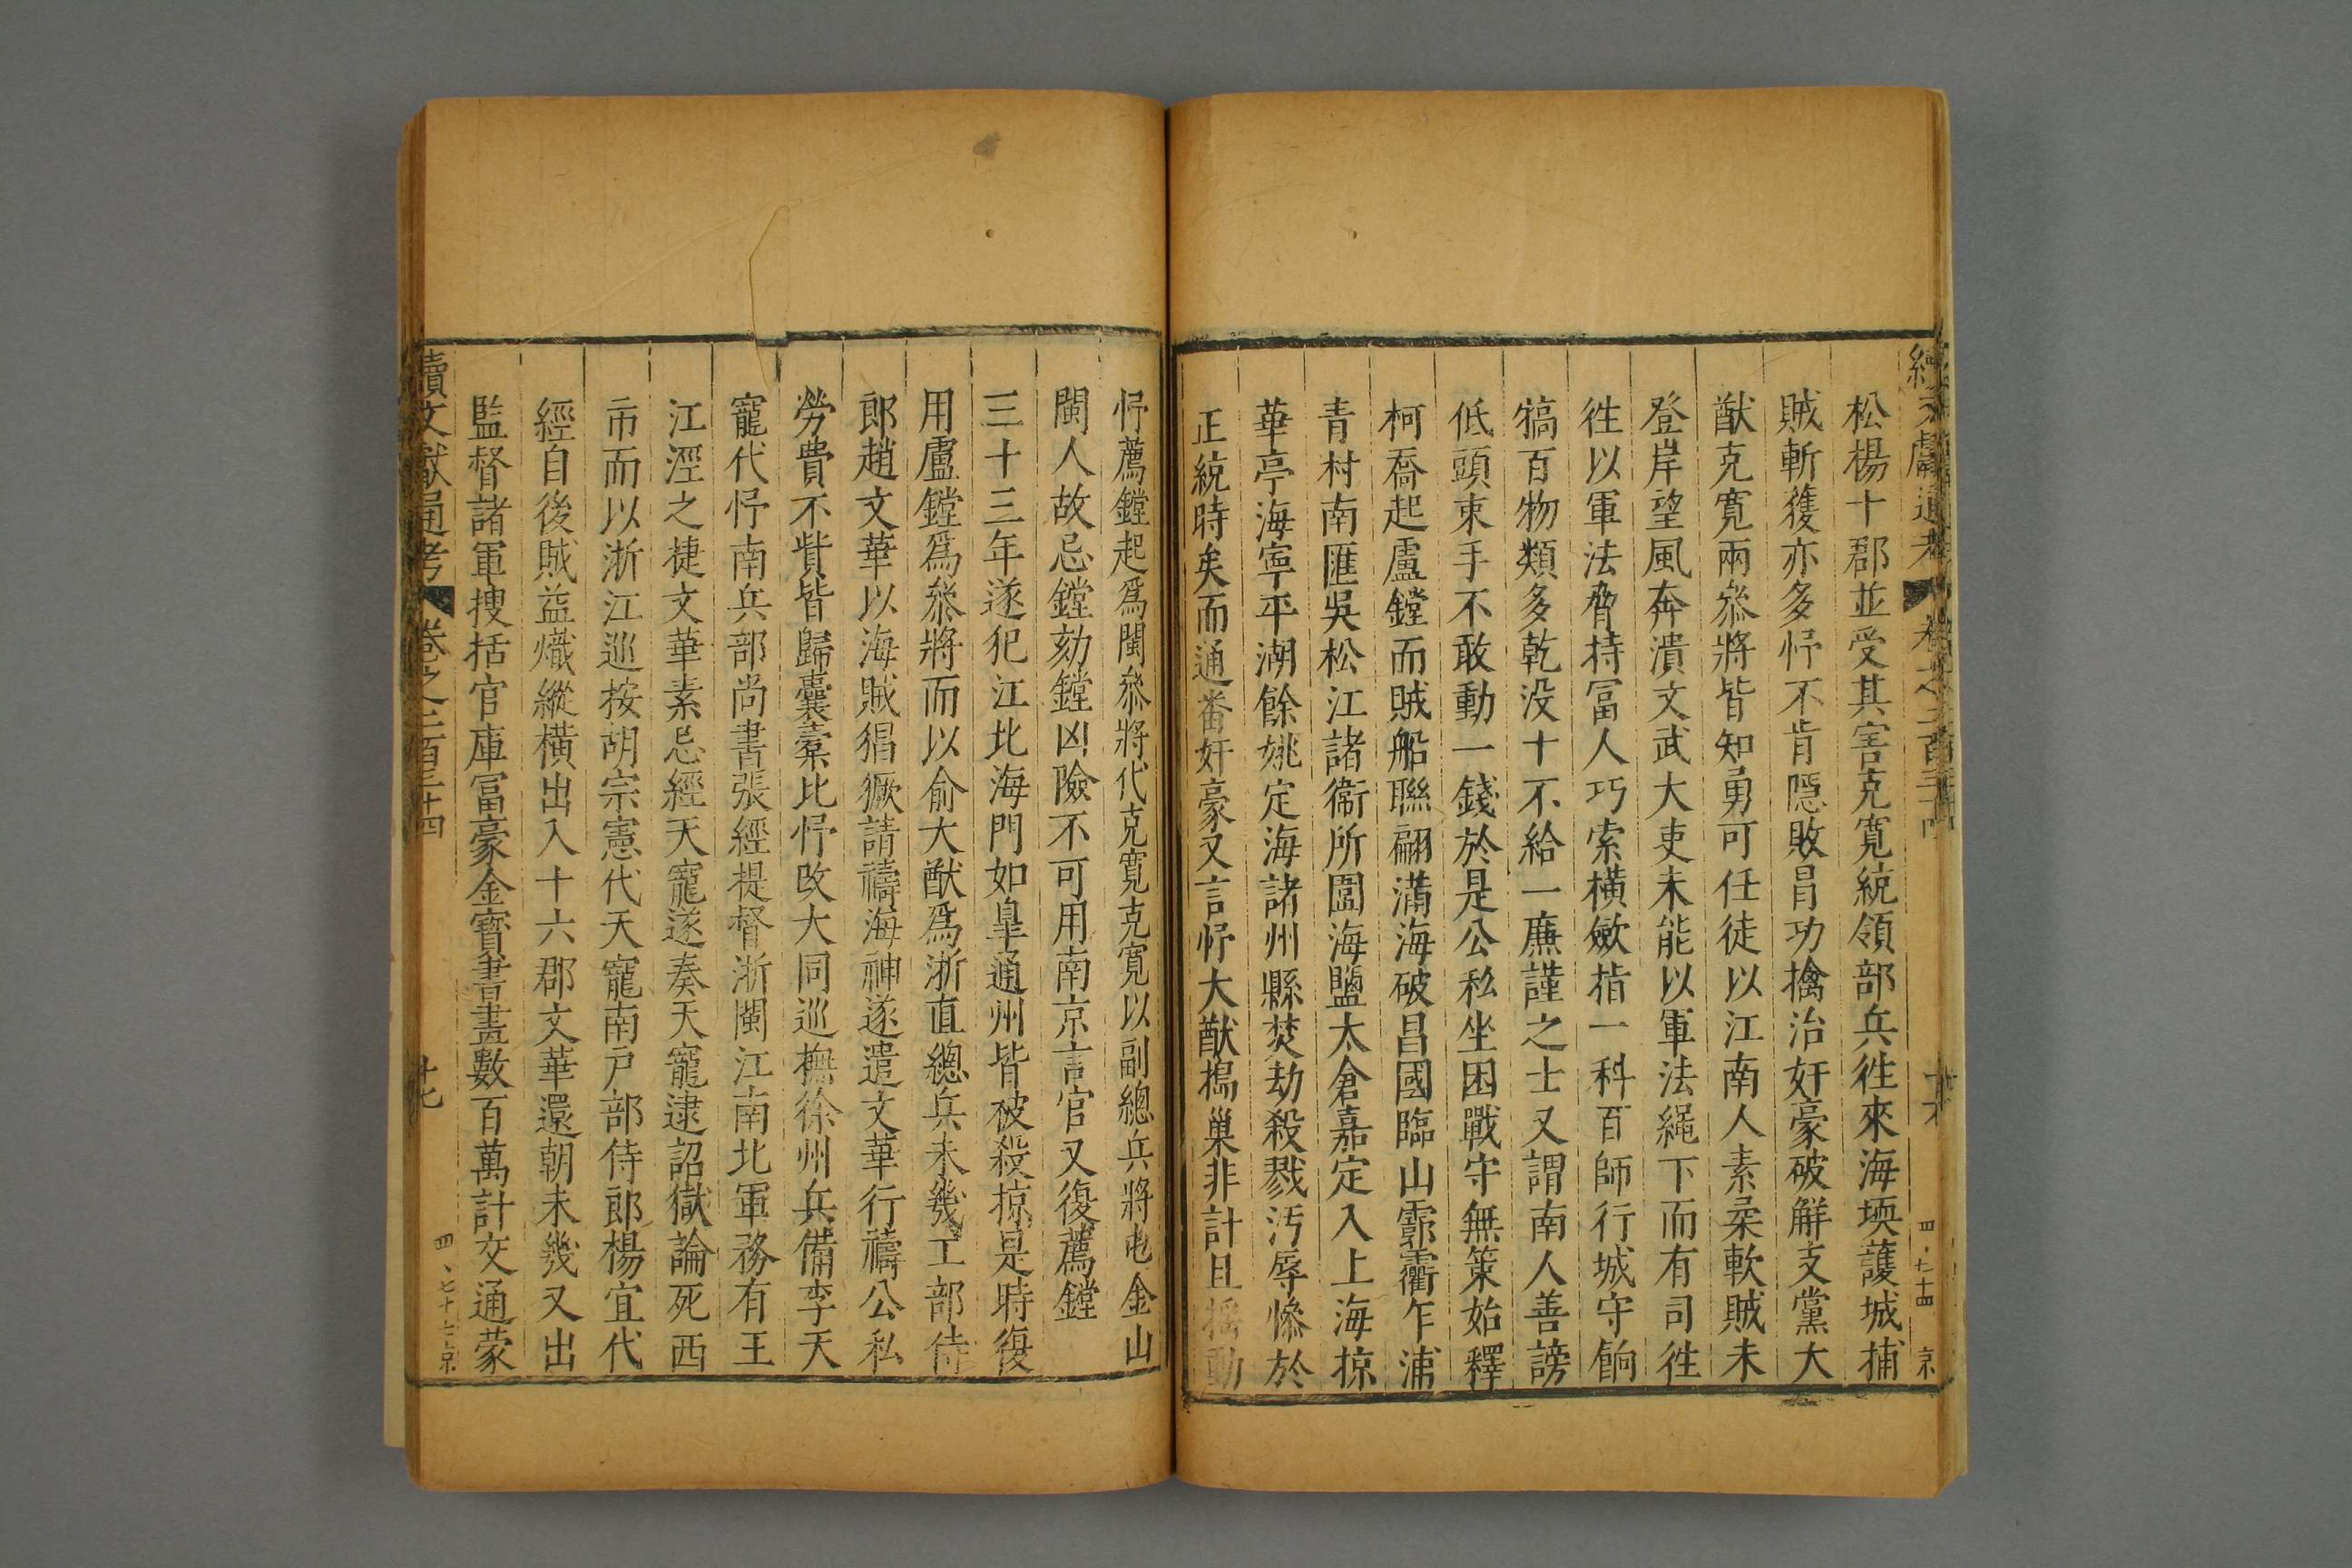 續文獻通考 卷之二百三十四 十六 四、七十四 京
松楊十郡並受其害克寬統領部兵徃來海堧護城捕
賊斬獲亦多忬不肯隠敗冒功擒治奸豪破觧支黨大
猷克寛兩叅將皆知勇可任徒以江南人素柔軟賊未
登岸望風奔潰文武大吏未能以軍法繩下而有司徃
徃以軍法脅持冨人巧索橫斂指一科百師行城守餉
犒百物類多乾没十不給一廉謹之士又謂南人善謗
低頭束手不敢動一錢於是公私坐困戰守無策始釋
柯喬起盧鏜而賊船聯翩滿海破昌國臨山霩衢乍浦
青村南匯吳松江諸衞所圍海鹽太倉嘉定入上海掠
華亭海寧平湖餘姚定海諸州縣焚劫殺戮汚辱慘於
正統時矣而通番奸豪又言忬大猷搗巢非計且揺動
忬薦鏜起爲閩叅將代克寬克寬以副總兵將屯金山
閩人故忌鏜劾鏜凶險不可用南京言官又復薦鏜
三十三年遂犯江北海門如皐通州皆被殺掠是時復
用盧鏜爲叅將而以俞大猷爲浙直總兵未幾工部侍
郎趙文華以海賊猖獗請禱海神遂遣文華行禱公私
勞費不貲皆歸囊橐比忬改大同巡撫徐州兵備李天
寵代忬南兵部尚書張經提督浙閩江南北軍務有王
江涇之捷文華素忌經天寵遂奏天寵逮詔獄論死西
市而以浙江巡按胡宗憲代天寵南戸部侍郎楊宜代
經自後賊益熾縱橫出入十六郡文華還朝未幾又出
監督諸軍搜括官庫冨豪金寶書畫數百萬計交通蒙
續文獻通考 卷之二百三十四 十七 四、七十七京